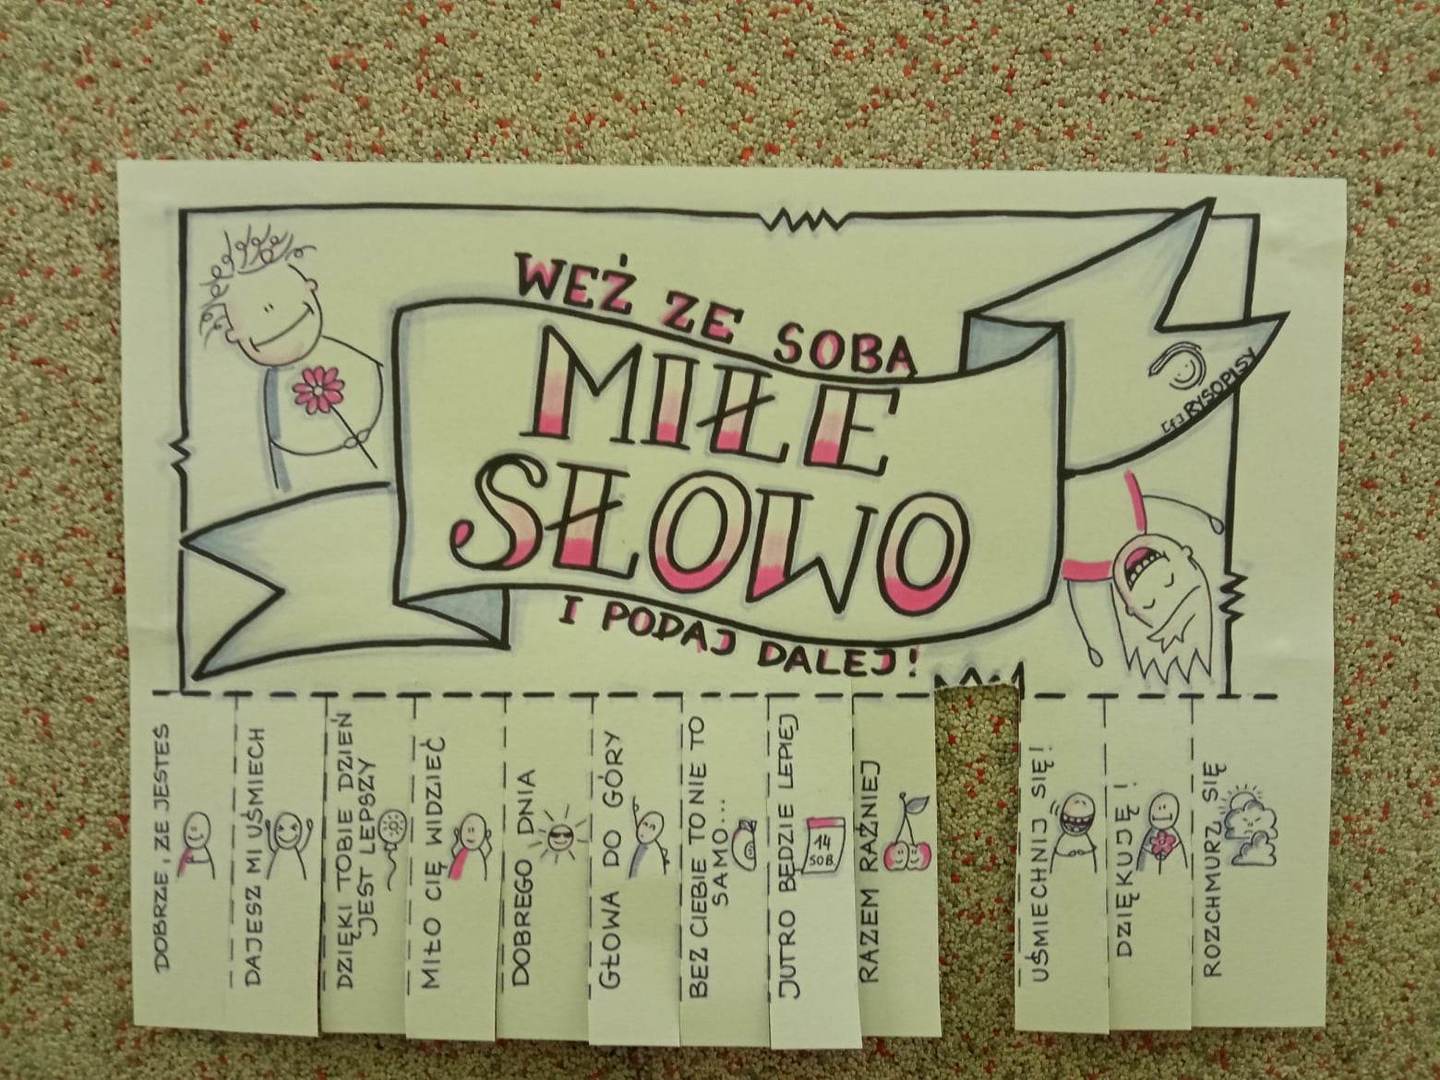 WEŹ ZE SOBĄ
MIŁE
SŁOWO
I PODAJ DALEJ!
[f] RYSOPISY
DOBRZE, ŻE JESTEŚ
DAJESZ MI UŚMIECH
DZIĘKI TOBIE DZIEŃ
JEST LEPSZY
MIŁO CIĘ WIDZIEĆ
DOBREGO DNIA
GŁOWA DO GÓRY
BEZ CIEBIE TO NIE TO
SAMO...
JUTRO BĘDZIE LEPIEJ
14
SOB.
RAZEM RAŹNIEJ
UŚMIECHNIJ SIĘ!
DZIĘKUJĘ!
ROZCHMURZ SIĘ